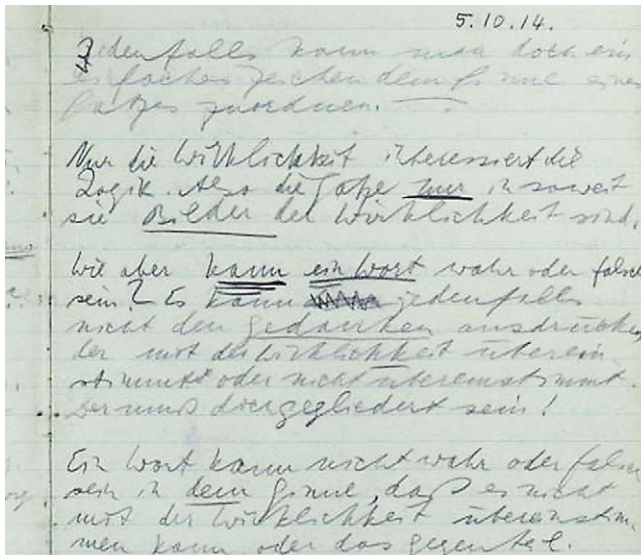 5.10.14.
Jedenfalls kann man doch ein
einfaches Zeichen dem Sinne eines
Satzes zuordnen. —
Nur die Wirklichkeit interessiert die
Logik. Also die Sätze nur in soweit
sie Bilder der Wirklichkeit sind.
Wie aber kann ein Wort wahr oder falsch
sein? Es kann jedenfalls
nicht den Gedanken ausdrücken
der mit der Wirklichkeit überein-
stimmt oder nicht übereinstimmt.
Der muß doch gegliedert sein!
Ein Wort kann nicht wahr oder falsch
sein in dem Sinne, daß es nicht
mit der Wirklichkeit übereinstim-
men kann oder das Gegenteil.